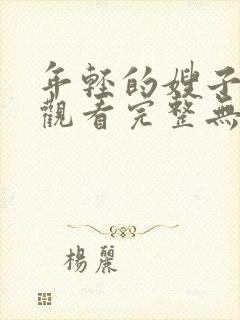 年輕的嫂子
觀看完整無
楊麗